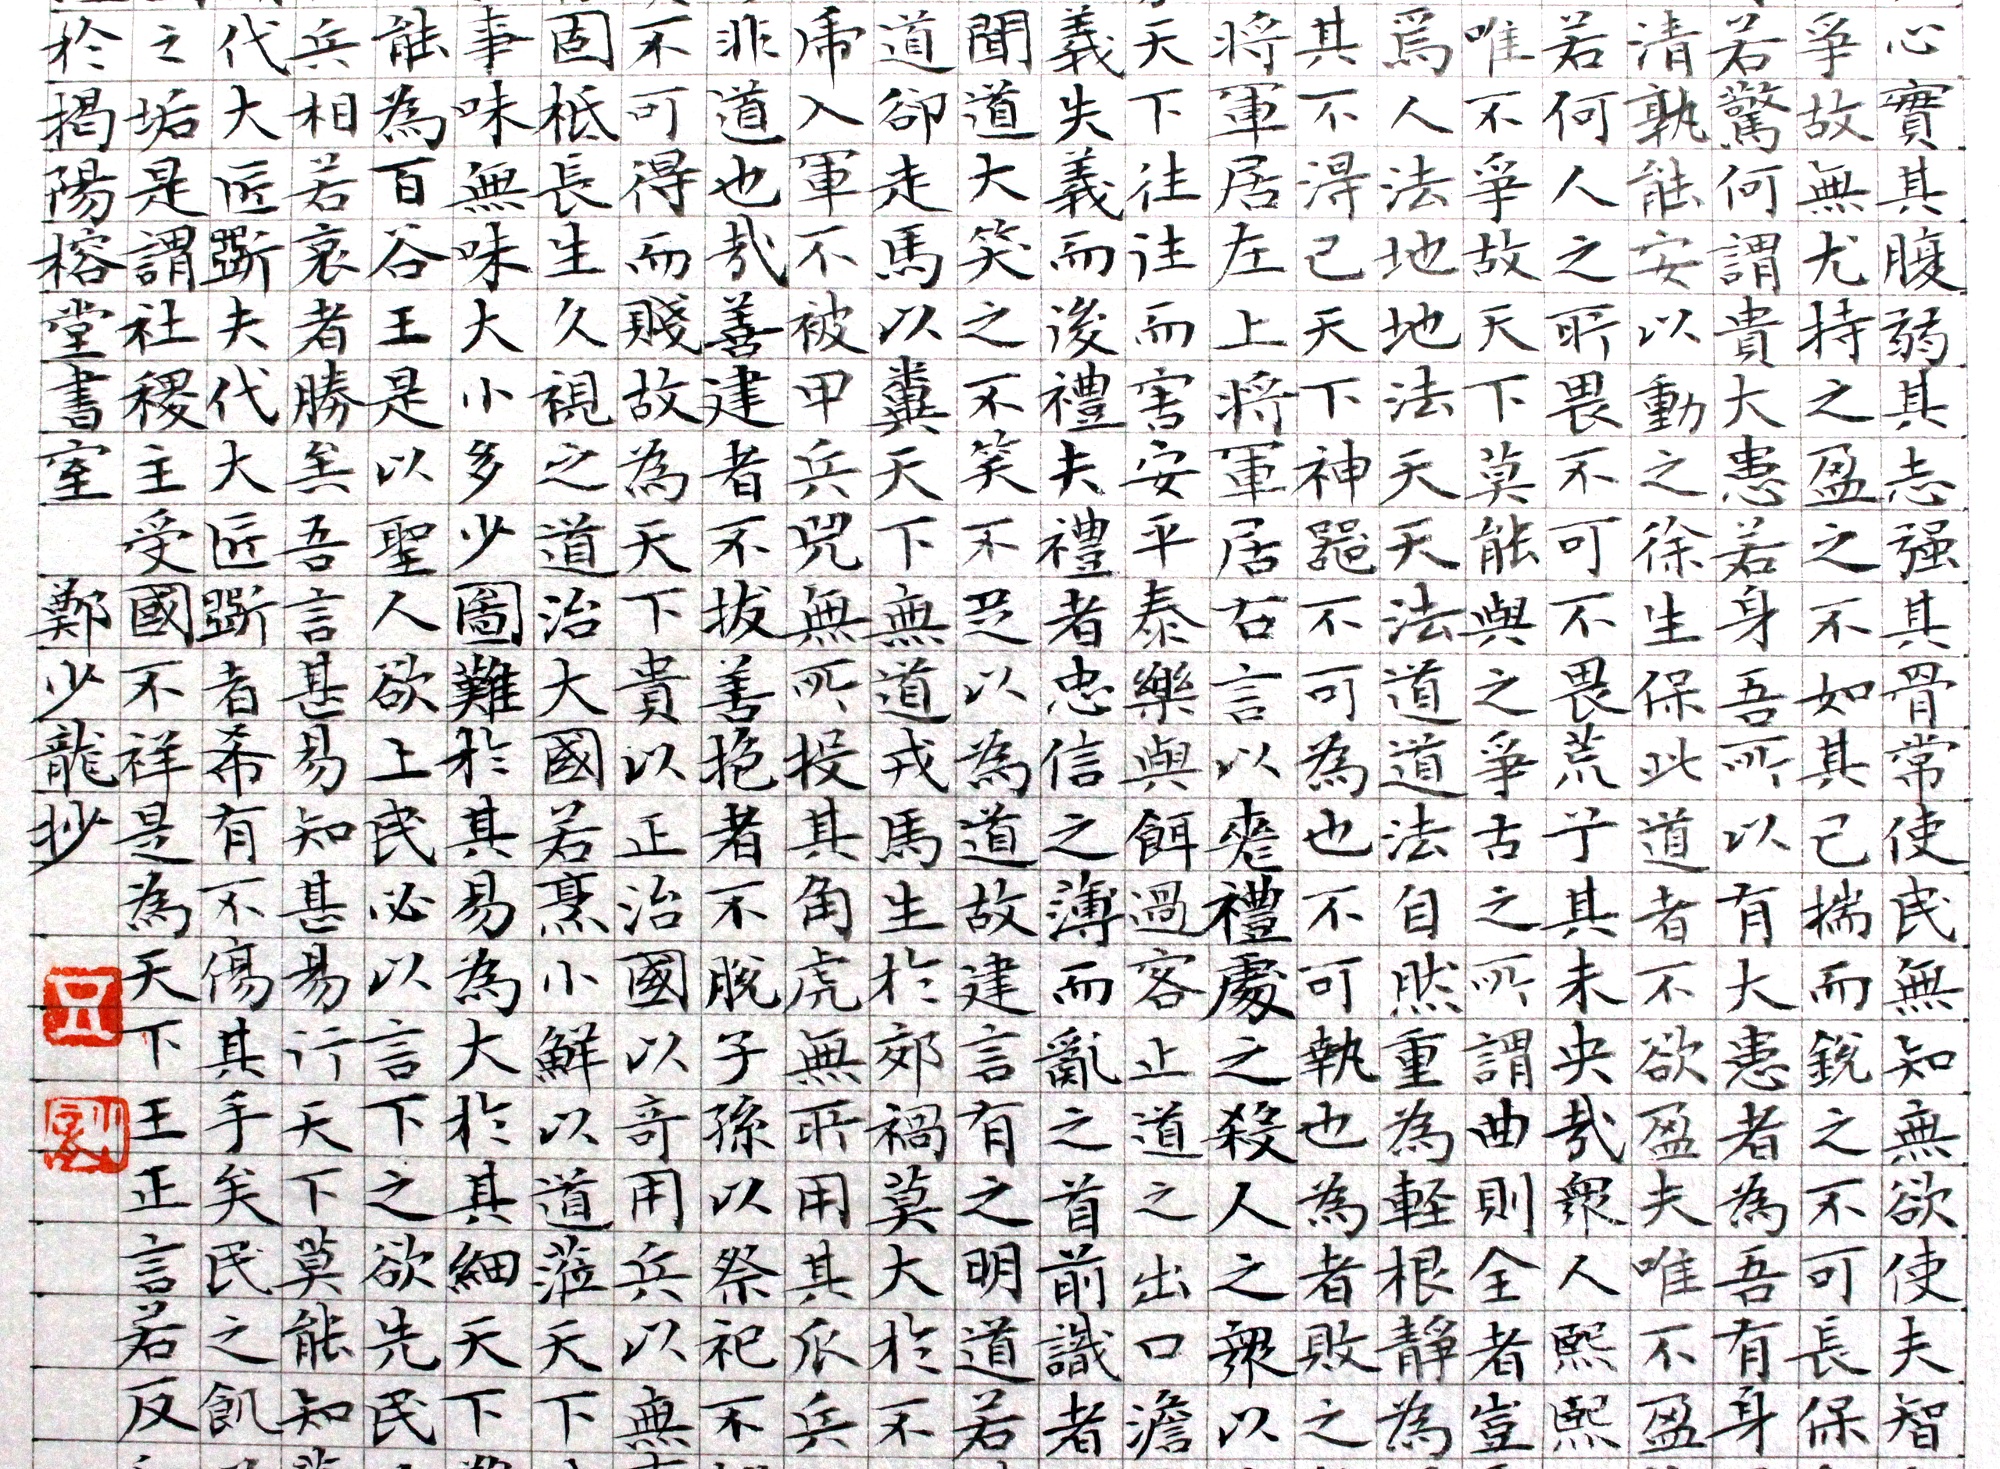 心實其腹弱其志强其骨常使民無知無欲使夫智
爭故無尤持之盈之不如其己揣而銳之不可長保
若驚何謂貴大患若身吾所以有大患者為吾有身
清孰能安以動之徐生保此道者不欲盈夫唯不盈
若何人之所畏不可不畏荒兮其未央哉衆人熙熙
唯不爭故天下莫能與之爭古之所謂曲則全者豈
爲人法地地法天天法道道法自然重為輕根靜為
其不得已天下神器不可為也不可執也為者敗之
將軍居左上將軍居右言以喪禮處之殺人之衆以
天下往往而害安平泰樂與餌過客止道之出口澹
義失義而後禮夫禮者忠信之薄而亂之首前識者
聞道大笑之不笑不足以為道故建言有之明道若
道卻走馬以糞天下無道戎馬生於郊禍莫大於不
虎入軍不被甲兵兕無所投其角虎無所用其爪兵
非道也哉善建者不拔善抱者不脫子孫以祭祀不
不可得而賤故為天下貴以正治國以奇用兵以無
固柢長生久視之道治大國若烹小鮮以道蒞天下
事味無味大小多少圖難於其易為大於其細天下
能為百谷王是以聖人欲上民必以言下之欲先民
兵相若哀者勝矣吾言甚易知甚易行天下莫能知
代大匠斲夫代大匠斲者希有不傷其手矣民之飢
之垢是謂社稷主受國不祥是為天下王正言若反
於揭陽榕堂書室 鄭少龍抄